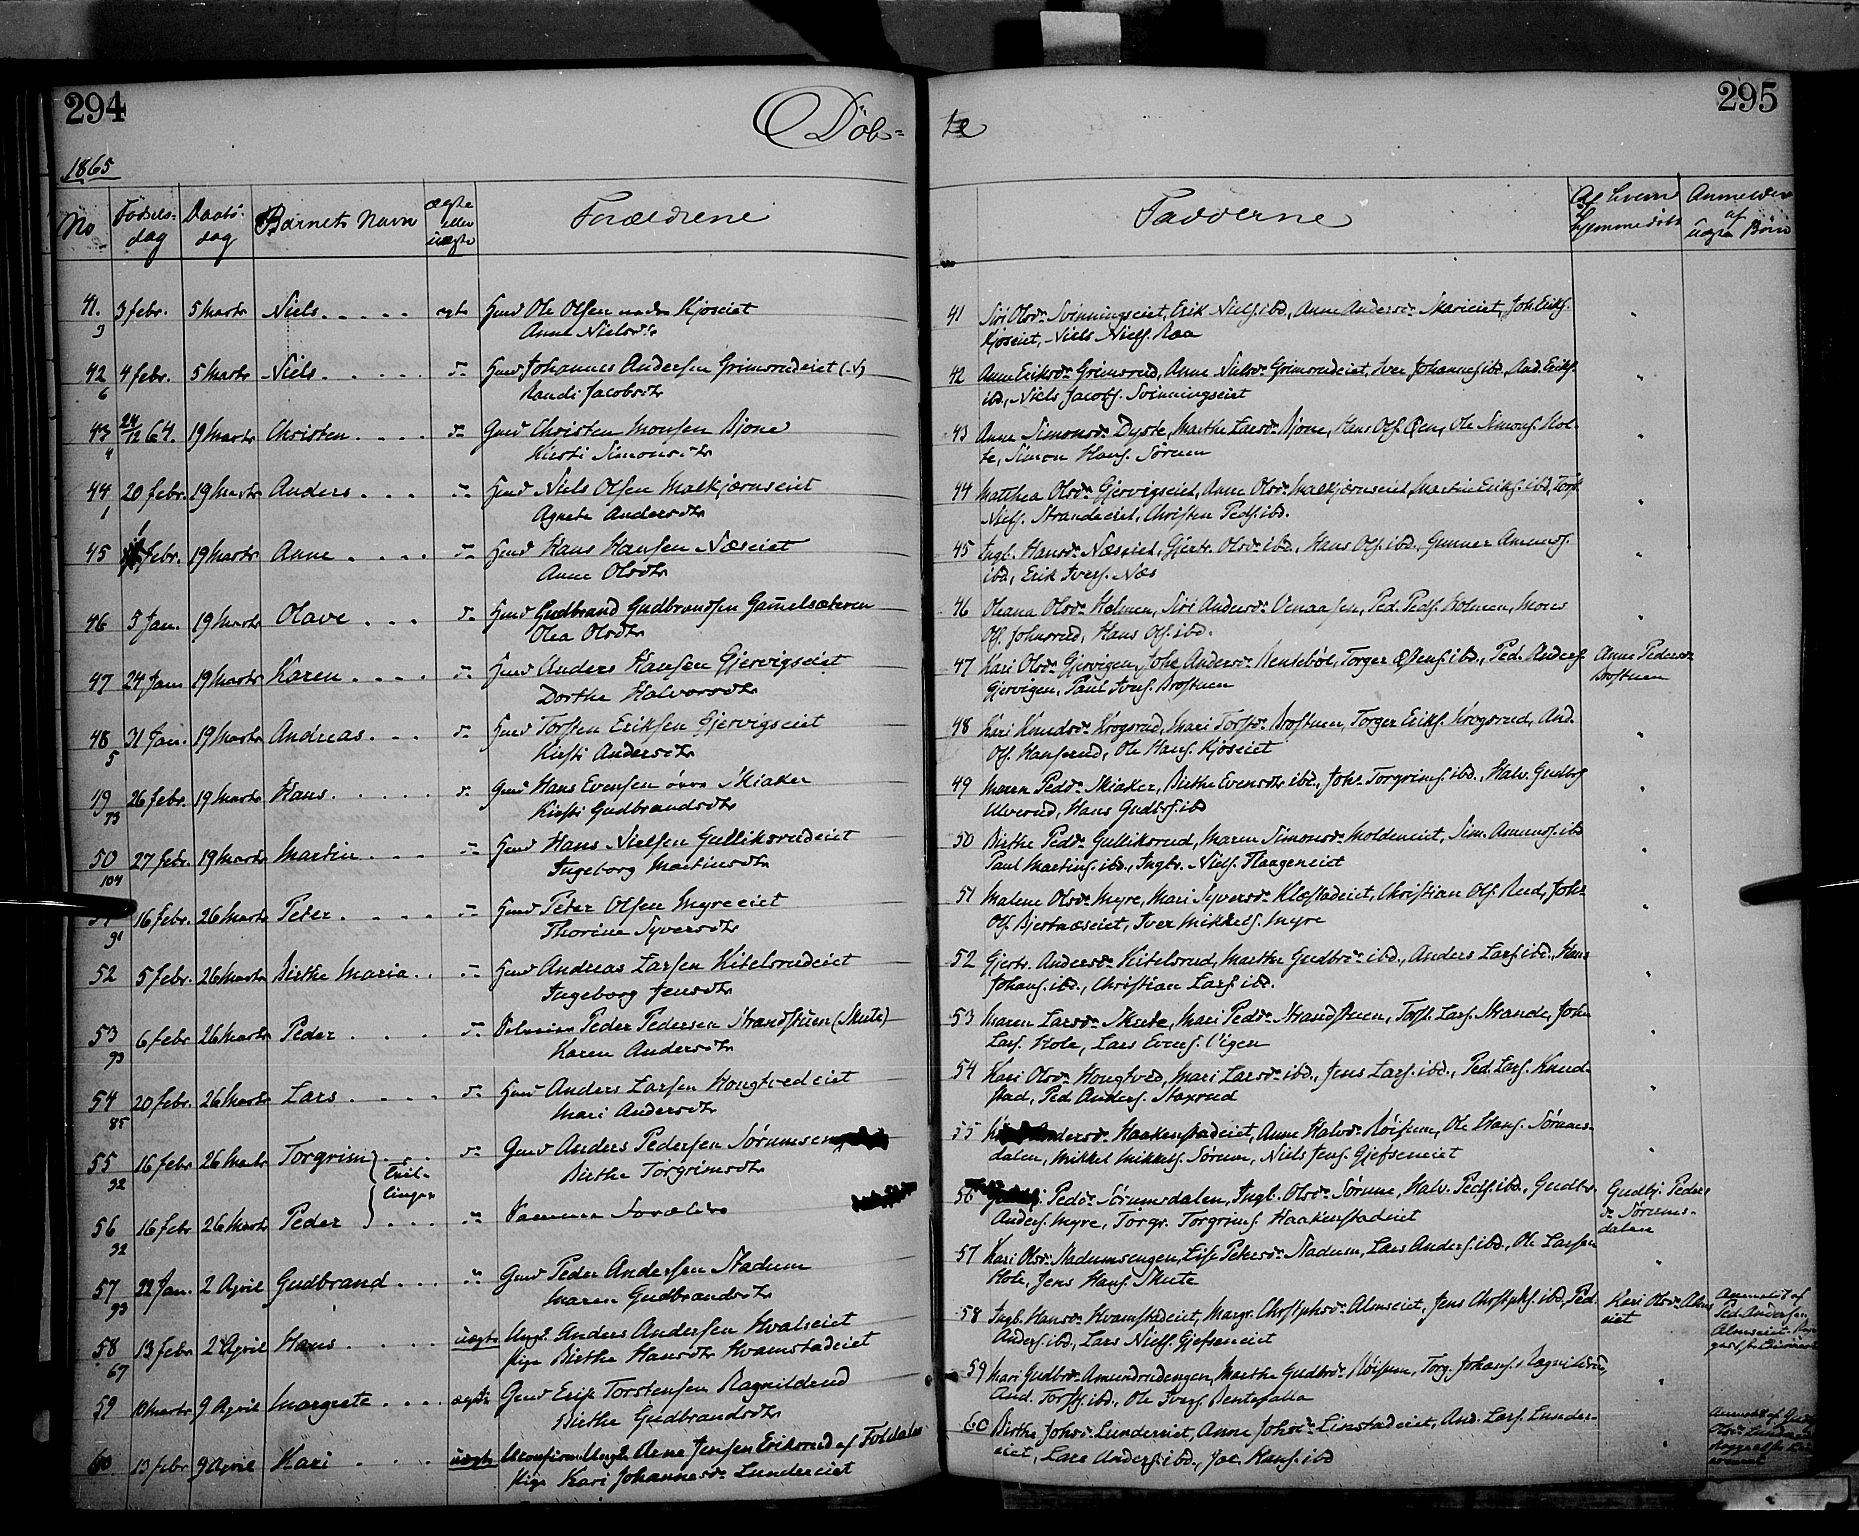 294
Døb-
1865
No
Fødsels-
dag
Daabs-
dag
Barnets Navn
ægte
eller
uægte
Forældrene
41. 3 febr. 5 Marts Niels ægte Huusmd Ole Olsen Kjoseiet
3 Anne Nielsdtr
42 4 febr. 5 Marts Niels Johannes Andersen Grimsrudeiet (N)
6 Randi Jacobsdtr
43 24/12 64. 19 Marts Christen Christen Monsen Bjone
4 Kirsti Simonsdtr
44 20 febr. 19 Marts Anders Niels Olsen Malkjærnseiet
1 Agnete Andersdtr
45 febr. 19 Marts Anne Hans Hansen Næseiet
Anne Olsdtr
46 5 Jan. 19 Marts Olave Gudbrand Gudbrandsen Gamelsæteren
Olea Olsdtr
47 24 Jan 19 Marts Karen Anders Hansen Gjervigseiet
Dorthe Halvorsdtr
48 31 Jan. 19 Marts Andreas Torsten Eriksen Gjervigseiet
5 Kirsti Andersdtr
49 26 febr. 19 Marts Hans Hans Evensen øvre Skiaker
73 Kirsti Gudbrandsdtr
50 27 febr. 19 Marts Martin Hans Nielsen Gulliksrudeiet
104 Ingeborg Martinsdtr
51 16 febr. 26 Marts Peter Peter Olsen Myreeiet
91 Thorine Syversdtr
52 5 febr. 26 Marts Birthe Maria Andreas Larsen Kitelsrudeiet
Ingeborg Jensdtr
53 6 febr 26 Marts Peder Peder Pedersen Strandstuen (Skute)
93 Karen Andersdtr
54 20 febr. 26 Marts Lars Anders Larsen Hougtvedeiet
85 Mari Andersdtr
55 16 febr 26 Marts Torgrim Anders Pedersen
32 Tvil-
linger
Birthe Torgrimsdtr
56 16 febr 26 Marts Peder Samme Forældre
32
57 22 Jan. 2 April Gudbrand Peder Andersen Stadum
93 Maren Gudbrandsdtr
58 13 febr 2 April Hans uægte Ungk. Anders Andersen Hvalseiet
67 Pige Birthe Hansdtr Hvamstadeiet
59 10 Marts 9 April Margrete ægte Erik Torstensen Ragnildrud
Birthe Gudbrandsdtr
60 13 febr 9 April Kari uægte Ungk. Arne Jensen Eriksrud af Foldalen
Pige Kari Johannesdr Lundereiet
295
te
Fadderne
Af hvem
hjemmedøbt
Anmelder
af
uægte Børn
41 Siri Olsdr Svinningseiet, Erik Niels. ibd, Anne Andersdr Skarieiet, Joh. Eriks.
Kjoseiet, Niels Niels. Raa
42 Anne Eriksdr Grimsrud, Anne Nielsdr Grimsrudeiet, Iver Johannes. ibd, And. Eriks.
ibd, Niels Jacobs. Svinningseiet
43 Anne Simonsdr Dyste, Marthe Larsdr Bjone, Hans Ols. Øen, Ole Simons. Hol-
te, Simon Hans. Sørum
44 Matthea Olsdr Gjervigseiet, Anne Olsdr Malkjærnseiet, Martin Eriks. ibd, Torst.
Niels. Strandeeiet, Christen Peds. ibd.
45 Ingb. Hansdr Næseiet, Gjertr. Olsdr ibd., Hans Ols. ibd., Gunner Amunds.
ibd, Erik Ivers. Næs
46 Oleana Olsdr Holmen, Siri Andersdr Ped. Peds. Holmen, Mons
Ols. Johnsrud, Hans Ols. ibd.
47 Kari Olsdr Gjervigen, Johe Andersdr Bentebøl, Torger Østens. ibd., Ped. Anders.
Gjervigen, Paul Ivers. Brostuen
Anne Pedersdr
Brostuen
48 Kari Knudsdr Krogsrud, Mari Torstsdr Brostuen, Torger Eriks. Krogsrud, And.
Ols. Hansrud, Ole Hans. Kjoseiet
49 Maren Pedsdr Skiaker, Birthe Evensdtr ibd., Joh. Torgrims. ibd., Halv. Gudbrs.
Ulverud, Hans Gudbrs. ibd
50 Birthe Pedsdr Gulliksrud, Maren Simonsdr Moldeneiet, Sim. Amunds. ibd
Paul Martins. ibd., Ingbr. Niels. Haageneiet
51 Malene Olsdr Myre, Mari Syversdr Klæstadeiet, Christian Ols. Rud, Johs
Ols. Bjertnæseiet, Iver Mikkels. Myre
52 Gjertr. Andersdr Kitelsrud, Marthe Gudbrdr ibd., Anders Lars. ibd., Hans
Johans. ibd., Christian Lars. ibd.
53 Maren Larsdr Skute, Mari Pedsdr Strandstuen, Torst. Lars. Strande, John
Lars. Hole, Lars Evens. Vigen
54 Kari Olsdr Hougtved, Mari Larsdr ibd., Jens Lars. ibd., Ped. Lars. Knud-
stad, Ped. Anders. Staxrud
55 Andersdr Haakenstadeiet, Anne Halvdr Røisum, Ole Hans. Sørums-
dalen, Mikkel Mikkels. Sørum, Niels Jens. Gjefseneiet
56 Pedsdr Sørumsdalen, Ingb. Olsdr Sørum, Halv. Peds. ibd., Gudbr.
Anders. Myre, Torgr. Torgrims. Haakenstadeiet
Gudbj. Peders-
dr Sørums-
dalen
57 Kari Olsdr Stadumsengen, Lise Petersdr Stadum, Lars Anders. ibd., Ole Larsen
Hole, Jens Hans. Skute
58 Ingb. Hansdr Hvamstadeiet, Margr. Christophsdr Almseiet, Jens Christophs. ibd, Ped.
Anders. ibd., Lars Niels. Gjefseneiet
Kari Olsdr Alms-
eiet
Anmeldt af
Ped. Anders.
Almseiet
59 Mari Gudbrdr Amundrudengen, Marthe Gudbrdr Røisum, Torg. Johans. Ragnildrud,
And. Torsts. ibd., Ole Ivers. Bentefalla
60 Birthe Johsdr Lundereiet, Anne Johsdr Linstadeiet, And. Lars. Lunder-
eiet, Lars Anders. ibd., Joe Hans. ibd
Anmeldt af